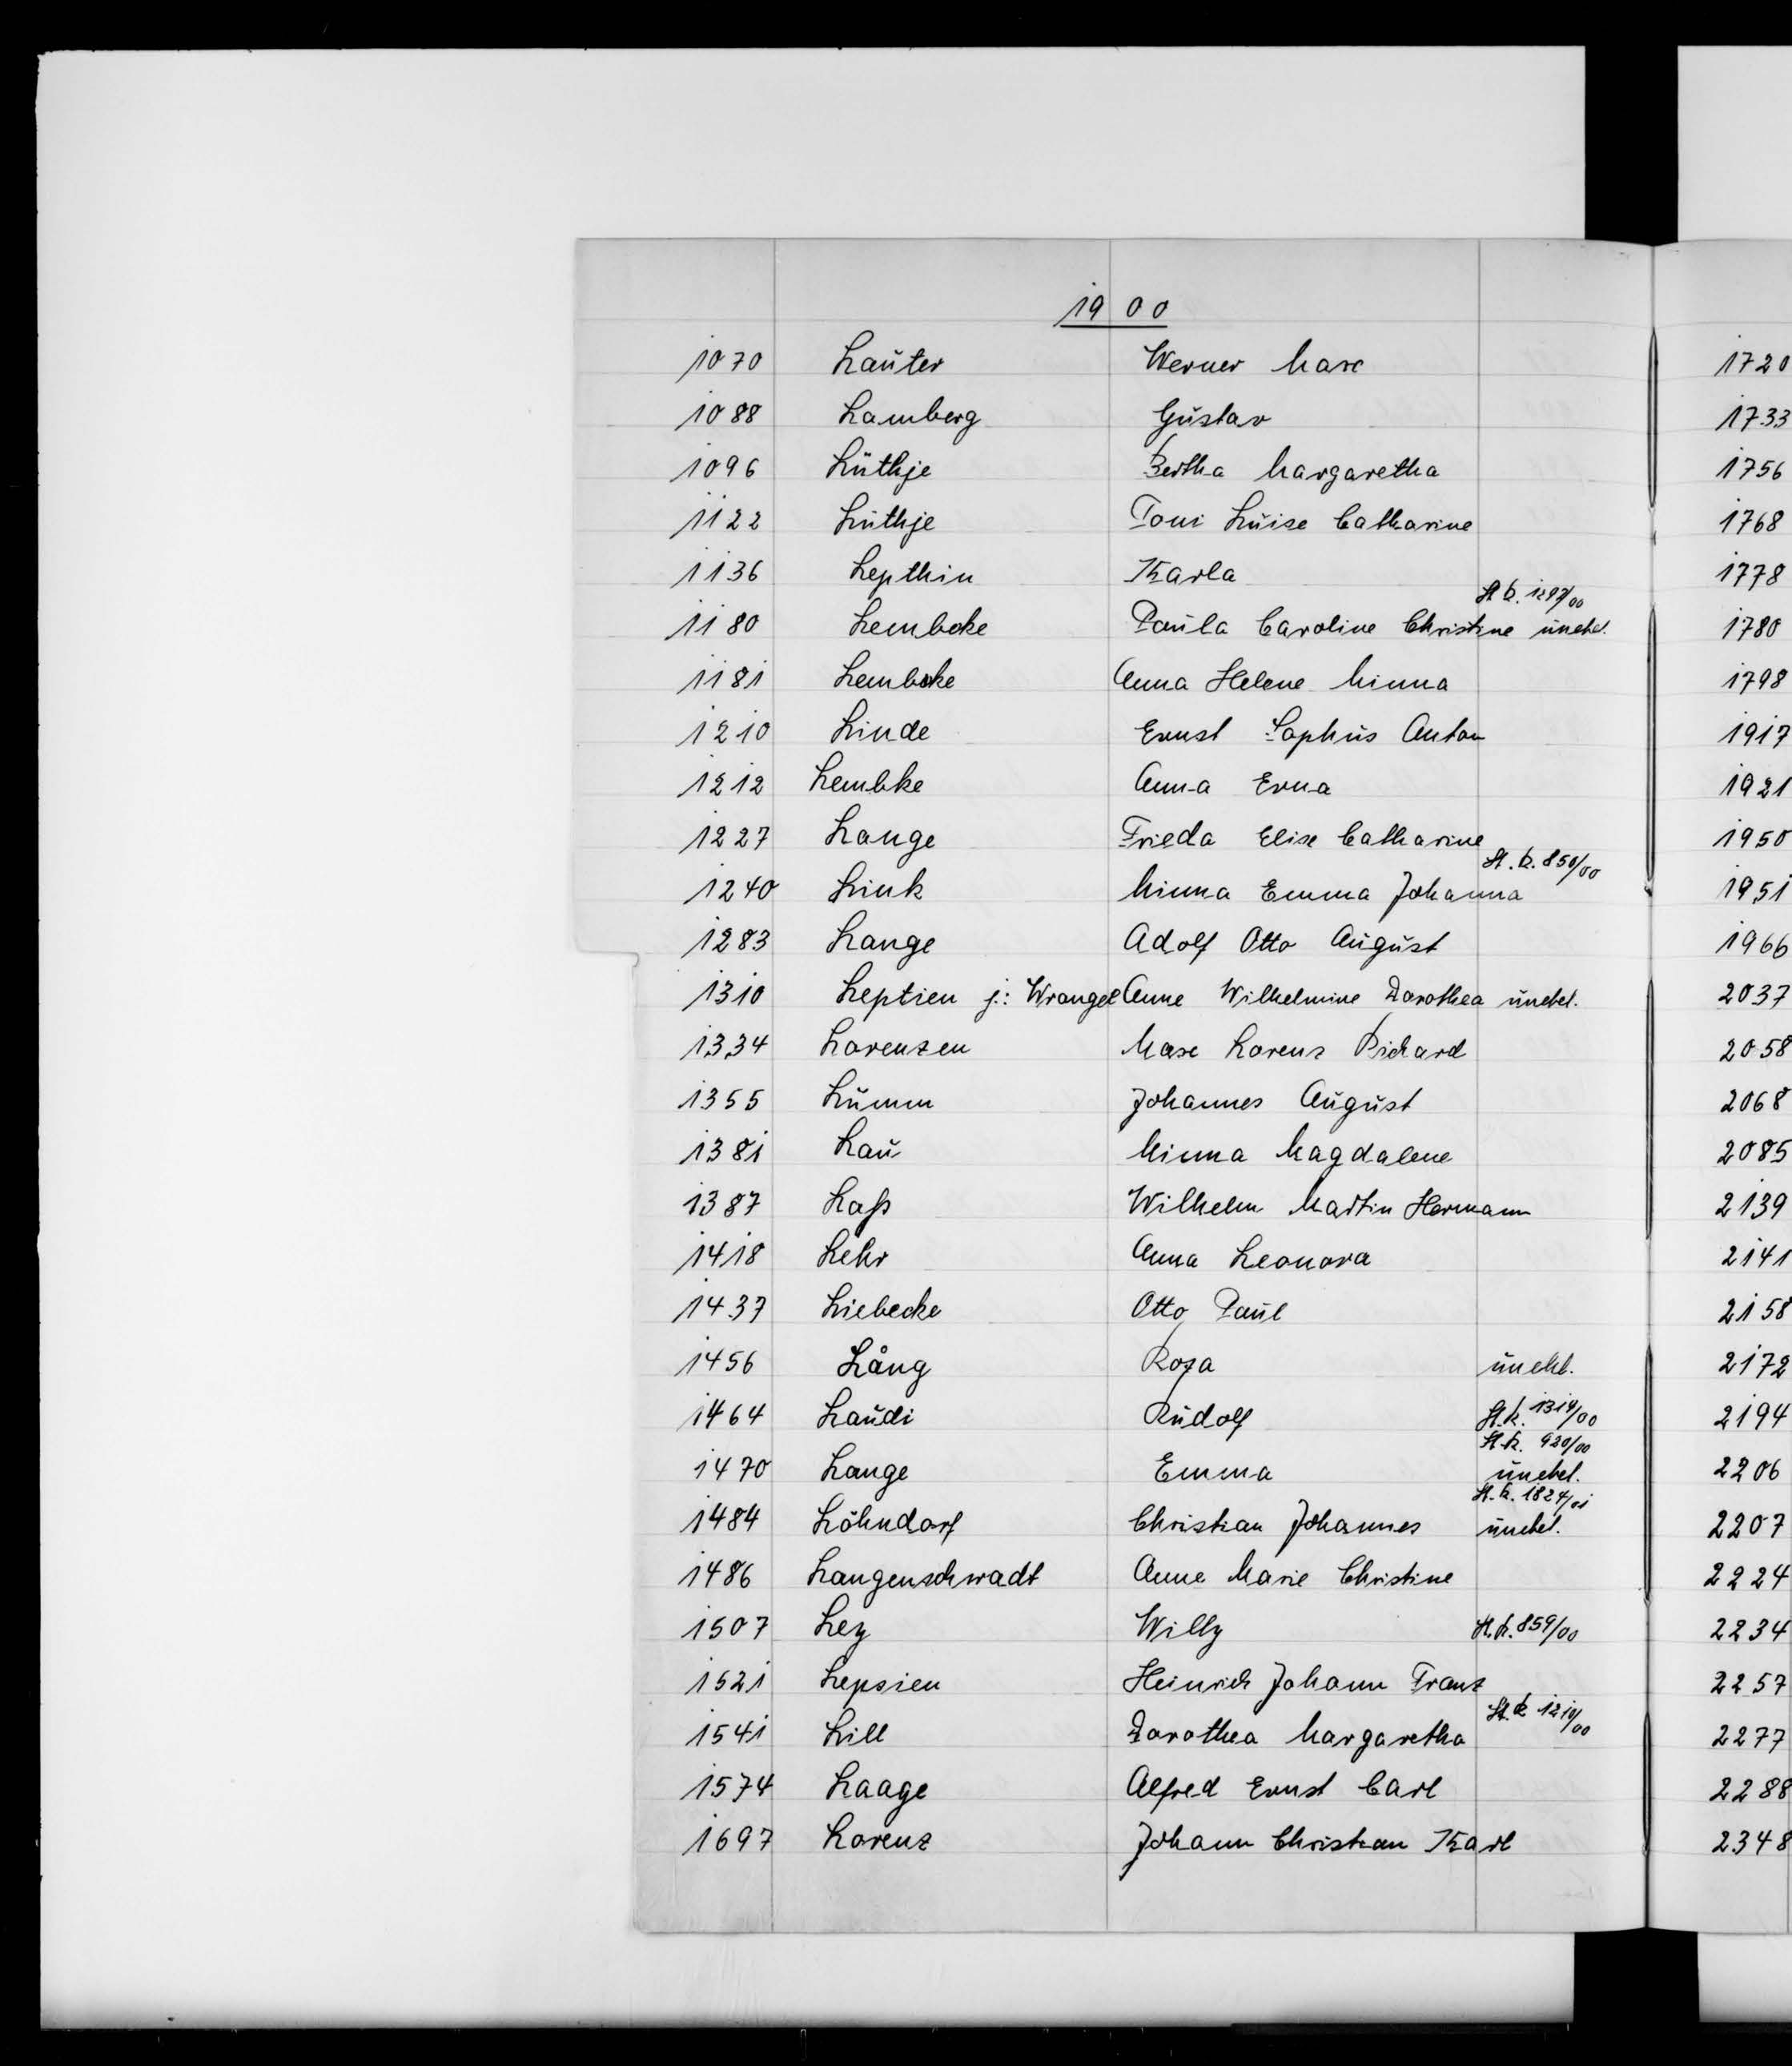 1900
1070 Lauter Werner Max
1088 Lamberg Gustav
1096 Lüthje Bertha Margaretha
1122 Lüthje Toni Luise Catharine
1136 Lepthin Karla
1180 Lembcke Paula Caroline Christine St. R. 1297/00 unehel.
1181 Lembcke Anna Helene Minna
1210 Linde Ernst Sophus Anton
1212 Lembke Anna Erna
1227 Lange Frieda Elise Catharine
1240 Link Minna Emma Johanna St. R. 850/00
1283 Lange Adolf Otto August
1310 Leptien j.: Wrangel Anne Wilhelmine Dorothea unehel.
1334 Lorenzen Max Lorenz Richard
1355 Lumm Johannes August
1381 Lau Minna Magdalene
1387 Laß Wilhelm Martin Hermann
1418 Lehr Anna Leonora
1437 Liebecke Otto Paul
1456 Lång Rosa unehel.
1464 Laudi Rudolf St. R. 1319/00
1470 Lange Emma St. R. 920/00 unehel.
1484 Löhndorf Christian Johannes St. R. 1824/01 unehel.
1486 Langenschwadt Anne Marie Christine
1507 Ley Willy St. R. 859/00
1521 Lepsien Heinrich Johann Franz
1541 Lill Dorothea Margaretha St. R. 1210/00
1574 Laage Alfred Ernst Carl
1697 Lorenz Johann Christian Karl
1720
1733
1756
1768
1778
1780
1798
1917
1921
1950
1951
1966
2037
2058
2068
2085
2139
2141
2158
2172
2194
2206
2207
2224
2234
2257
2277
2288
2348